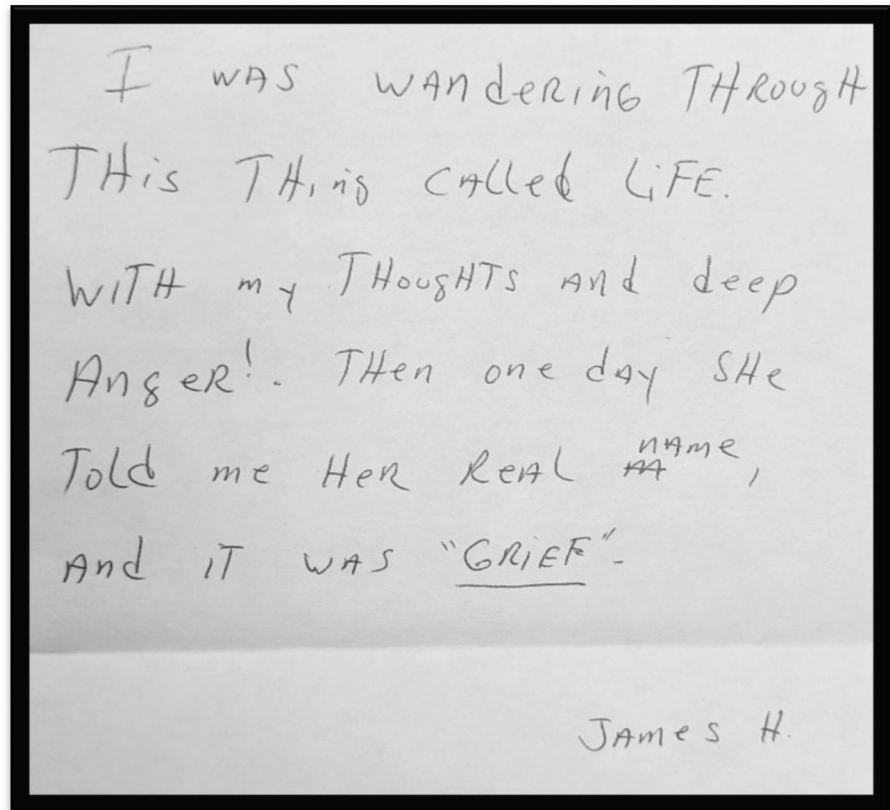 I WAS WANdERiNG THROugH
THiS THiNg CALLed LiFE.
WiTH my THougHTS ANd deep
ANgeR!. THen one dAy SHe
Told me HeR ReAL nAme,
ANd iT WAS "GRiEF"-
JAmes H.